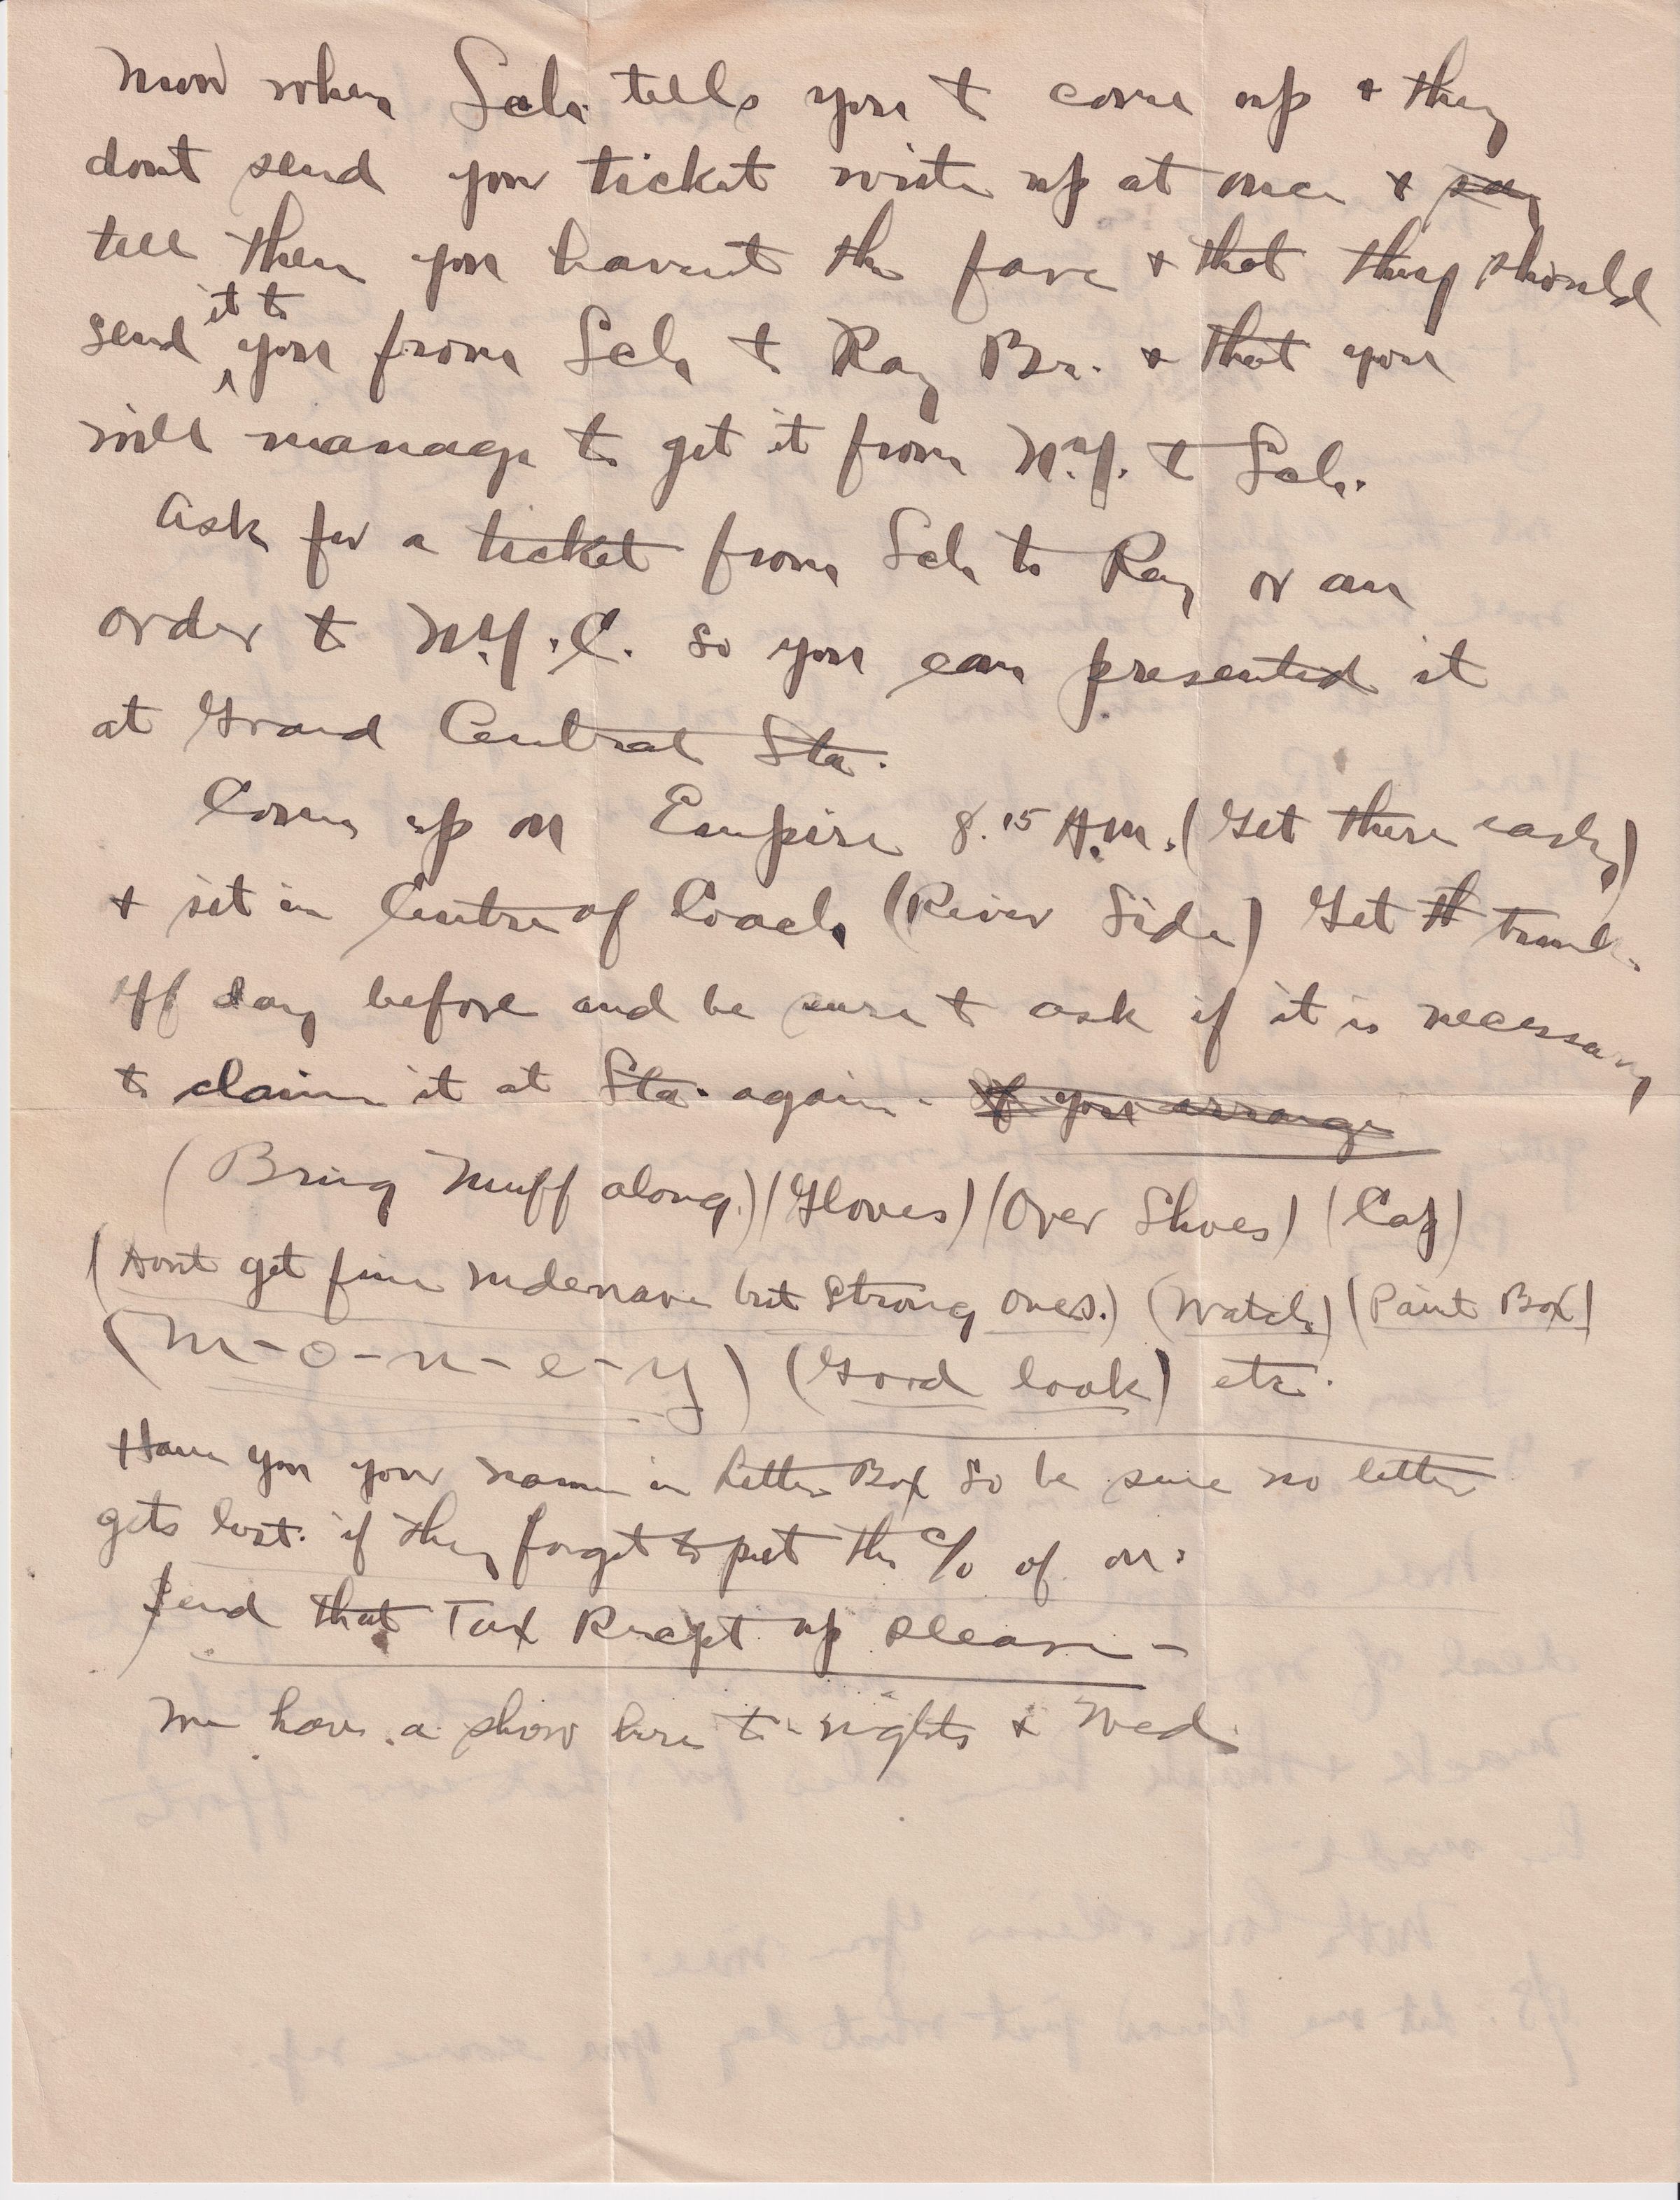 Now when Sch. tells you to come up & they
dont send you ticket write up at once & say
tell them you havent the fare & that they should
send it to you from Sch to Ray Br. & that you
will manage to get it from N.Y. to Sch.
Ask for a ticket from Sch to Ray or an
order to N.Y.C. so you can presented it
at Grand Central Sta.
Come up on Empire 8.15 A.M. (Get there early)
& sit in Centre of Coach (River Side) Get th trunk
off day before and be sure to ask if it is necessary
to claim it at Sta. again. If you arrange
(Bring Muff along) (Gloves) (Over Shoes) (Cap)
(Dont get fine underware but strong ones.) (Watch) (Paint Box)
(M-o-n-e-y) (Good look) etc.
Have you your name in Letter Box so be sure no letter
gets lost. if they forget to put the c/o of on.
Send that Tax Recept up please -
We have a show here to-nights & Wed.